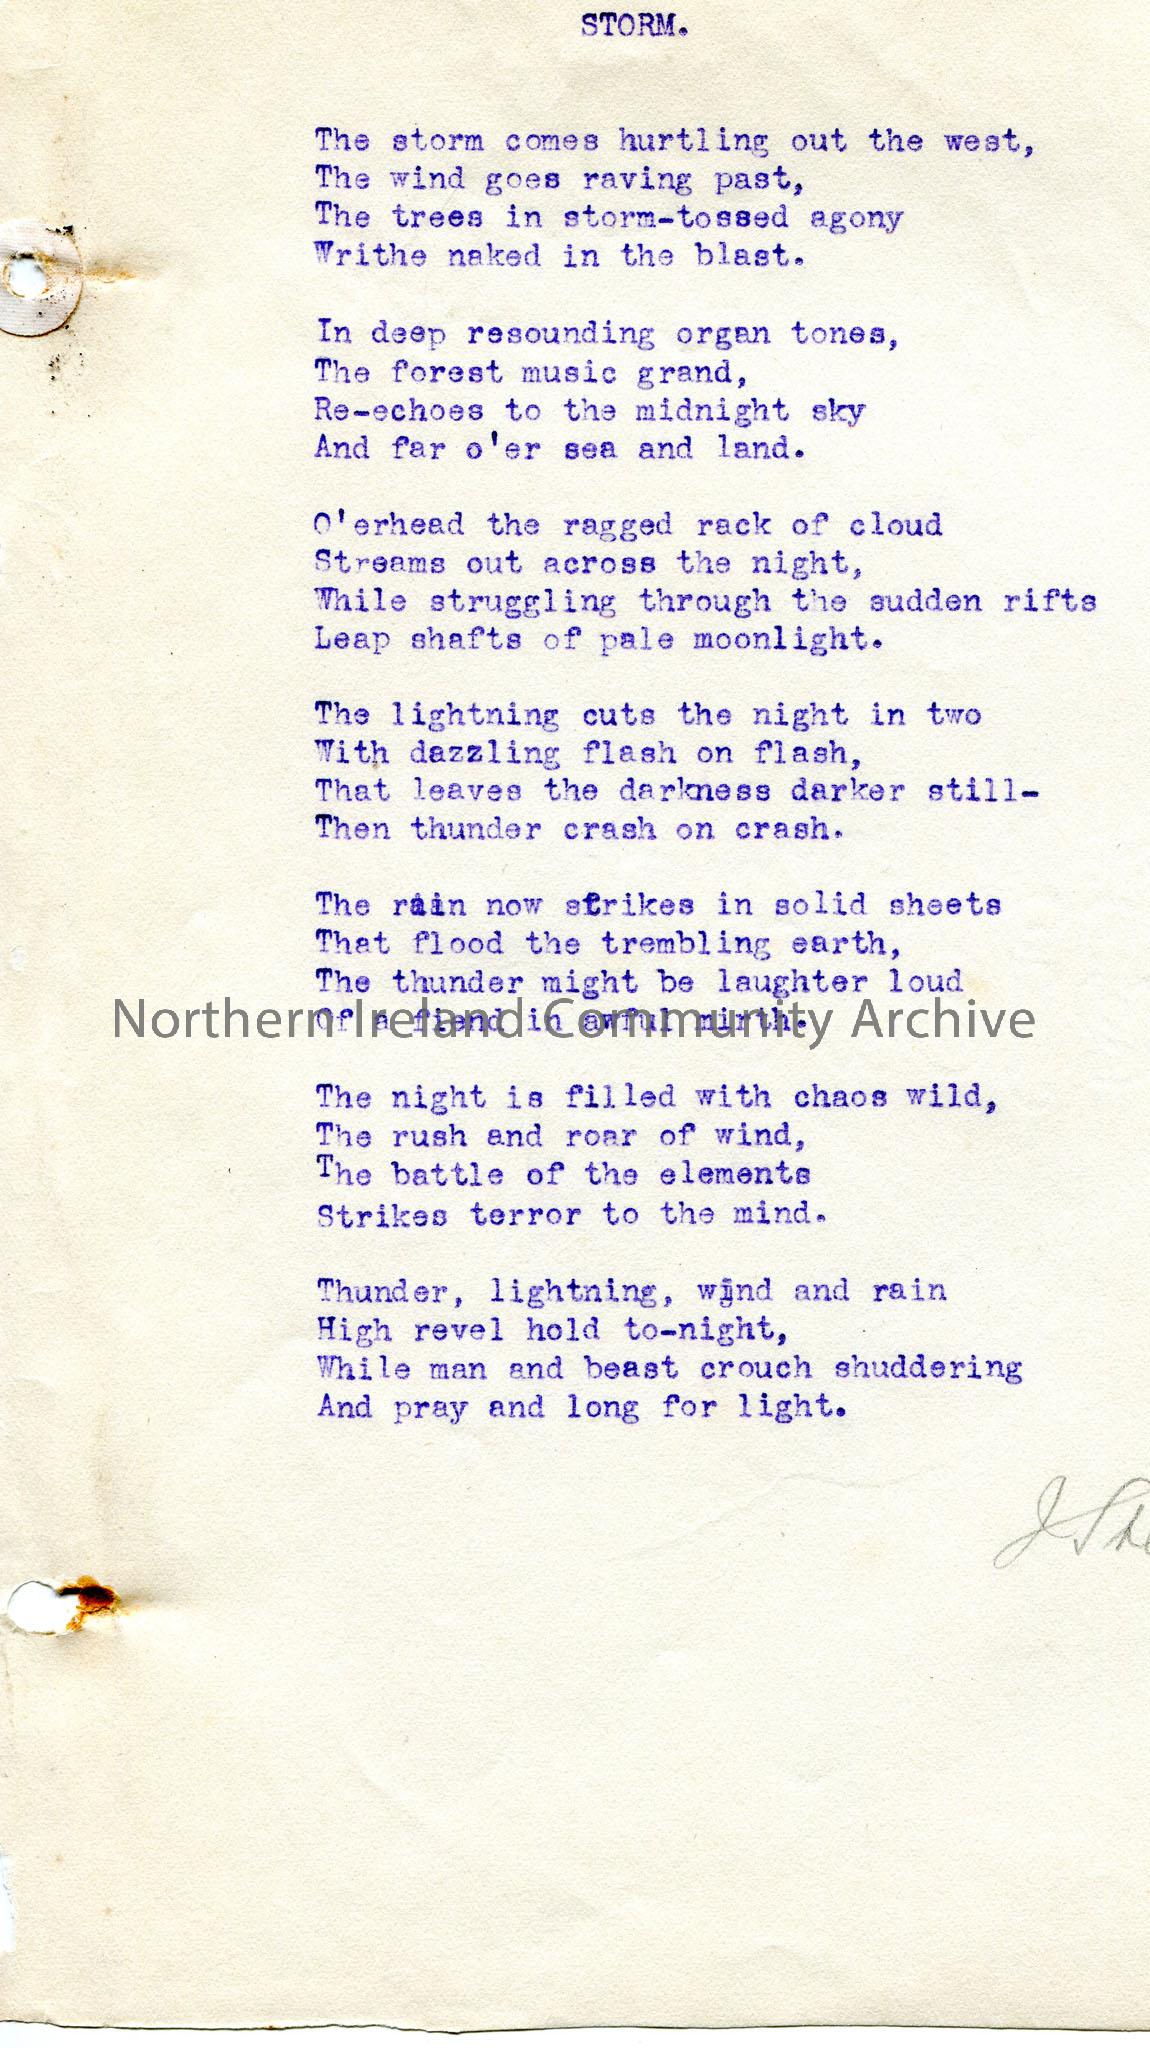 STORM.

The storm comes hurtling out the west,
The wind goes raving past,
The trees in storm-tossed agony
Writhe naked in the blast.

In deep resounding organ tones,
The forest music grand,
Re-echoes to the midnight sky
And far o'er sea and land.

O'erhead the ragged rack of cloud
Streams out across the night,
While struggling through the sudden rifts
Leap shafts of pale moonlight.

The lightning cuts the night in two
With dazzling flash on flash,
That leaves the darkness darker still-
Then thunder crash on crash.

The rain now strikes in solid sheets
That flood the trembling earth,
The thunder might be laughter loud
Of a fiend in awful mirth.
Northern Ireland Community Archive

The night is filled with chaos wild,
The rush and roar of wind,
The battle of the elements
Strikes terror to the mind.

Thunder, lightning, wind and rain
High revel hold to-night,
While man and beast crouch shuddering
And pray and long for light.

J